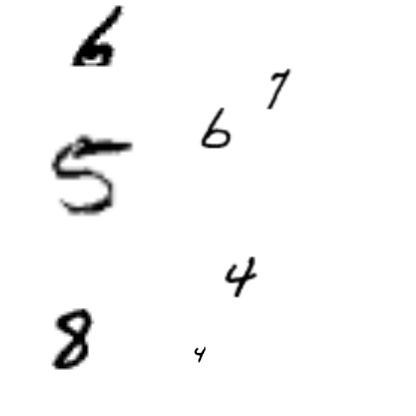 6
7
6
5
4
8
4